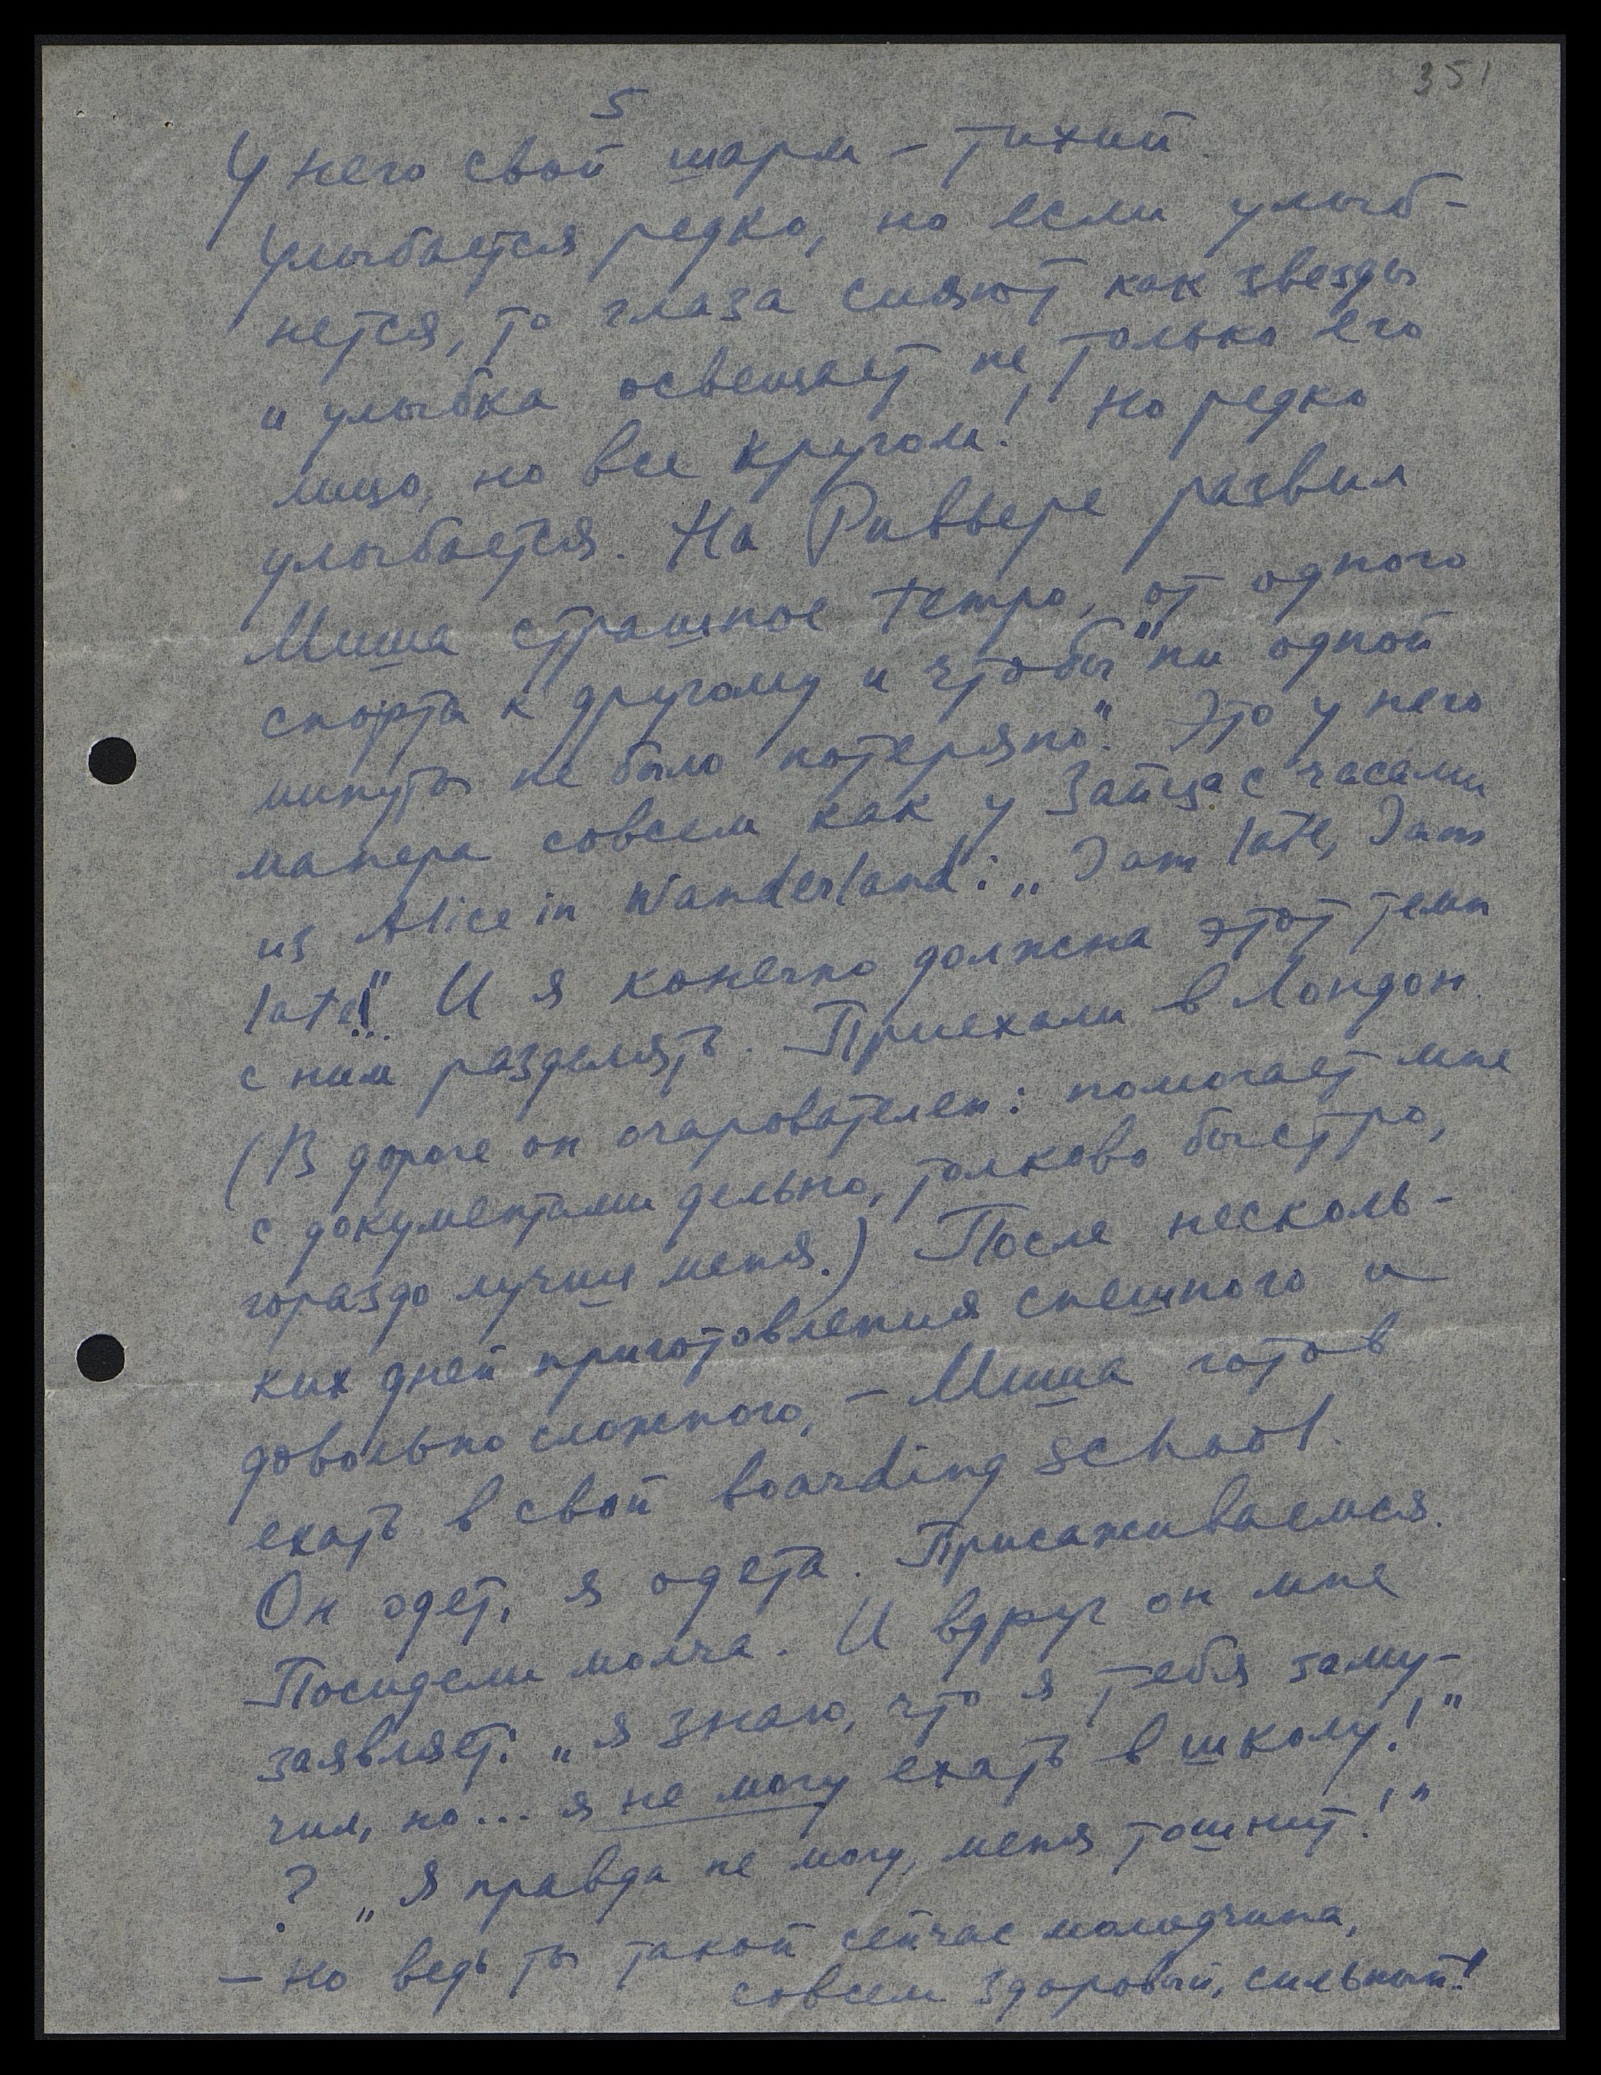 351
5
У него свой шарм – тихий.
Улыбается редко, но если улыб-
нется, то глаза сияют как звезды
и улыбка освещает не только его
лицо, но все кругом! Но редко
улыбается. На Ривьере развил
Миша страшное tempo, от одного
спорта к другому и чтобы "ни одной
минуты не было потеряно". Это у него
манера совсем как у Зайца с часами
из Alice in Wanderland: „I am late, I am
late!" И я конечно должна этот темп
с ним разделять. Приехали в Лондон.
(В дороге он очарователен: помогает мне
с документами дельно, толково быстро,
гораздо лучше меня.) После несколь-
ких дней приготовления спешного и
довольно сложного, – Миша готов
ехать в свой boarding school.
Он одет, я одета. Присаживаемся.
Посидели молча. И вдруг он мне
заявляет: „Я знаю, что я тебя заму-
чил, но... я не могу ехать в школу!"
? „Я правда не могу, меня тошнит!"
– Но ведь ты такой сейчас молодчина,
совсем здоровый, сильный!